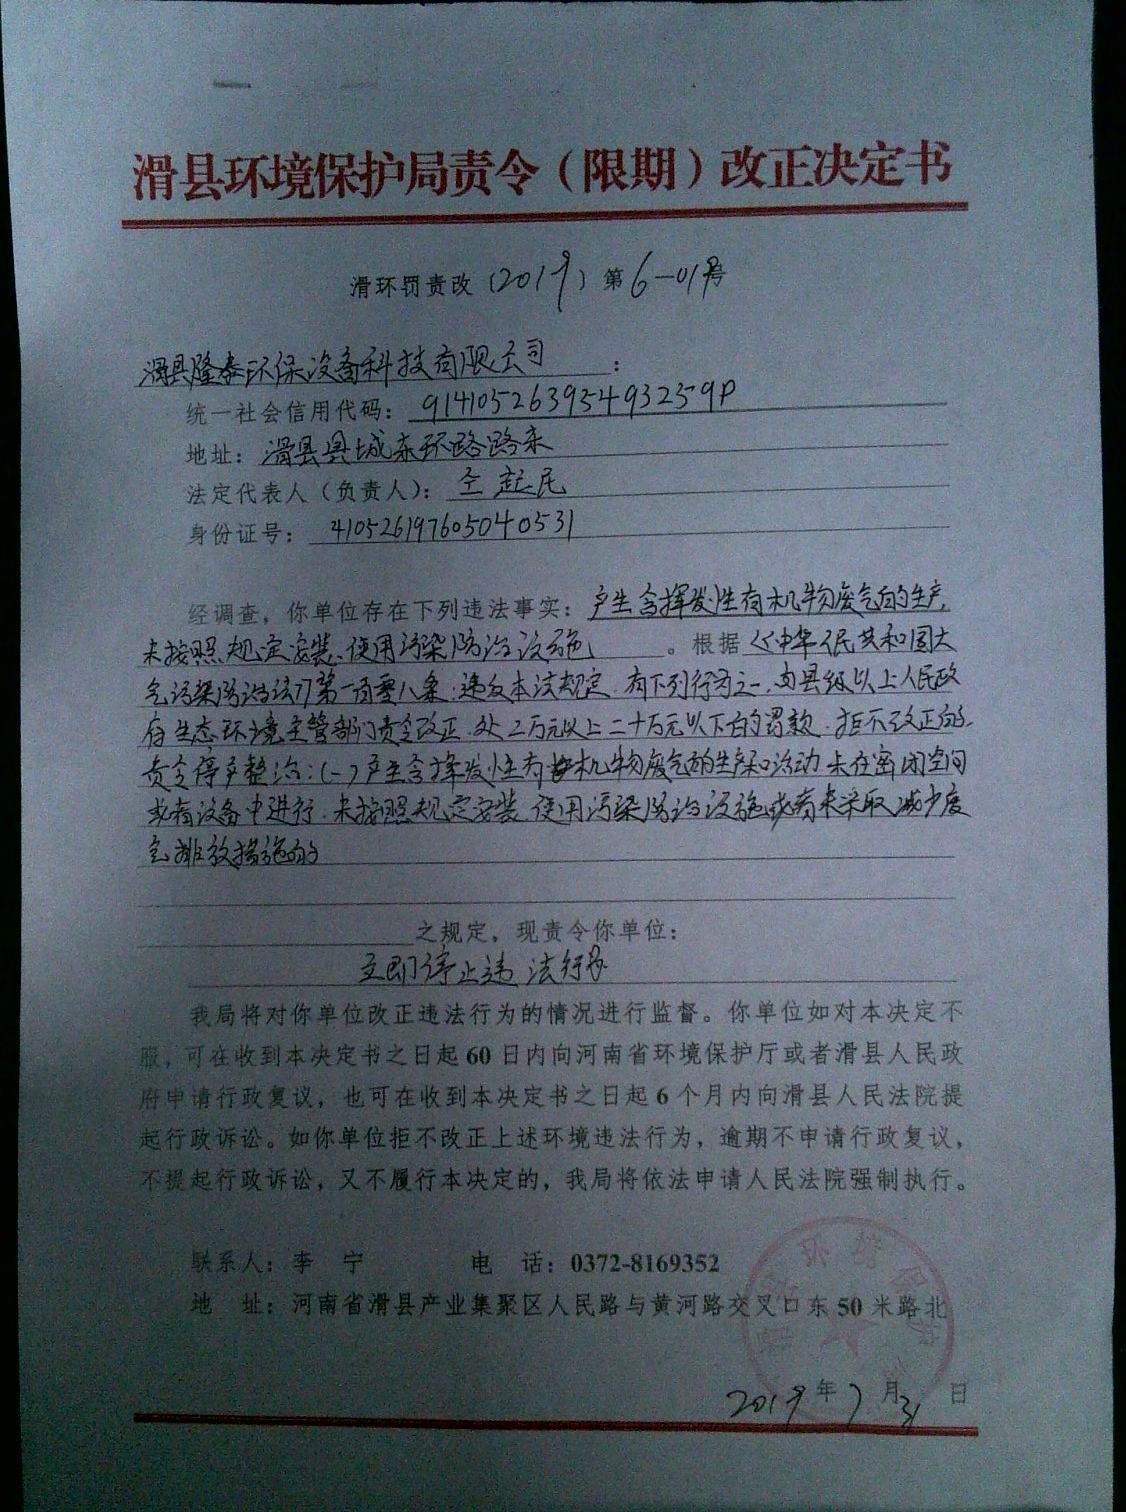 滑县环境保护局责令（限期）改正决定书
滑环罚责改（2019）第6-01号
滑县隆泰环保设备科技有限公司：
统一社会信用代码：91410526395493259P
地址：滑县县城东环路路东
法定代表人（负责人）：仝起民
身份证号：410526197605040531
经调查，你单位存在下列违法事实：产生含挥发性有机物废气的生产，
未按照规定安装、使用污染防治设施。根据《中华人民共和国大
气污染防治法》第一百零八条、违反本法规定，有下列行为之一，由县级以上人民政
府生态环境主管部门责令改正，处二万元以上二十万元以下的罚款，拒不改正的，
责令停产整治：(一)产生含挥发性有机物废气的生产和活动，未在密闭空间
或者设备中进行，未按照规定安装、使用污染防治设施或者未采取减少废
气排放措施的
之规定，现责令你单位：
立即停止违法行为
我局将对你单位改正违法行为的情况进行监督。你单位如对本决定不
服，可在收到本决定书之日起60日内向河南省环境保护厅或者滑县人民政
府申请行政复议，也可在收到本决定书之日起6个月内向滑县人民法院提
起行政诉讼。如你单位拒不改正上述环境违法行为，逾期不申请行政复议，
不提起行政诉讼，又不履行本决定的，我局将依法申请人民法院强制执行。
联系人：李 宁 电 话：0372-8169352
地 址：河南省滑县产业集聚区人民路与黄河路交叉口东50米路北
2019年7月31日